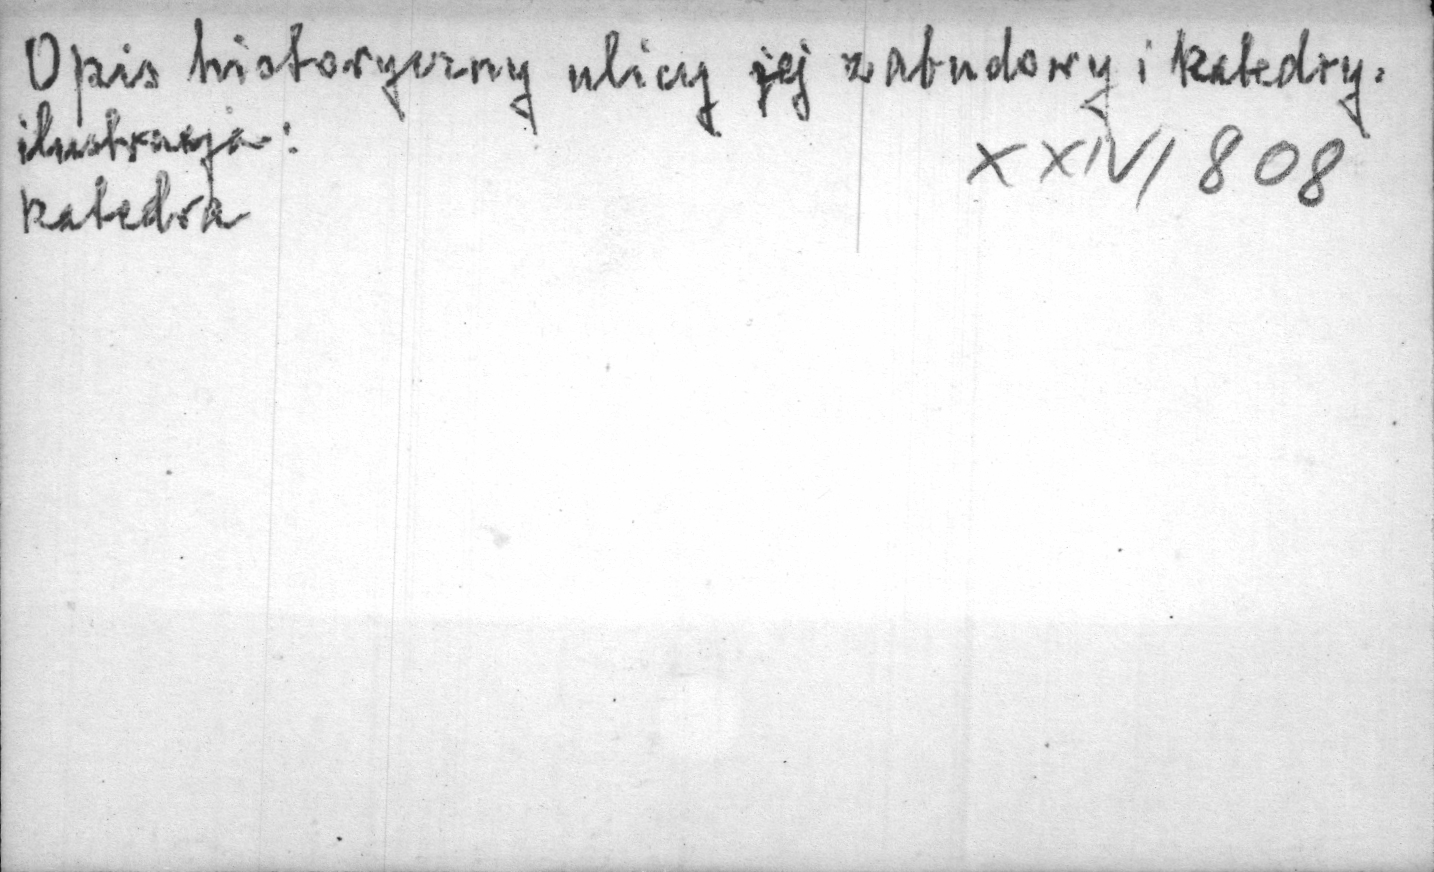 Opis historyczny ulicy jej zabudowy i katedry.
ilustracja:
katedra
XXIV/808